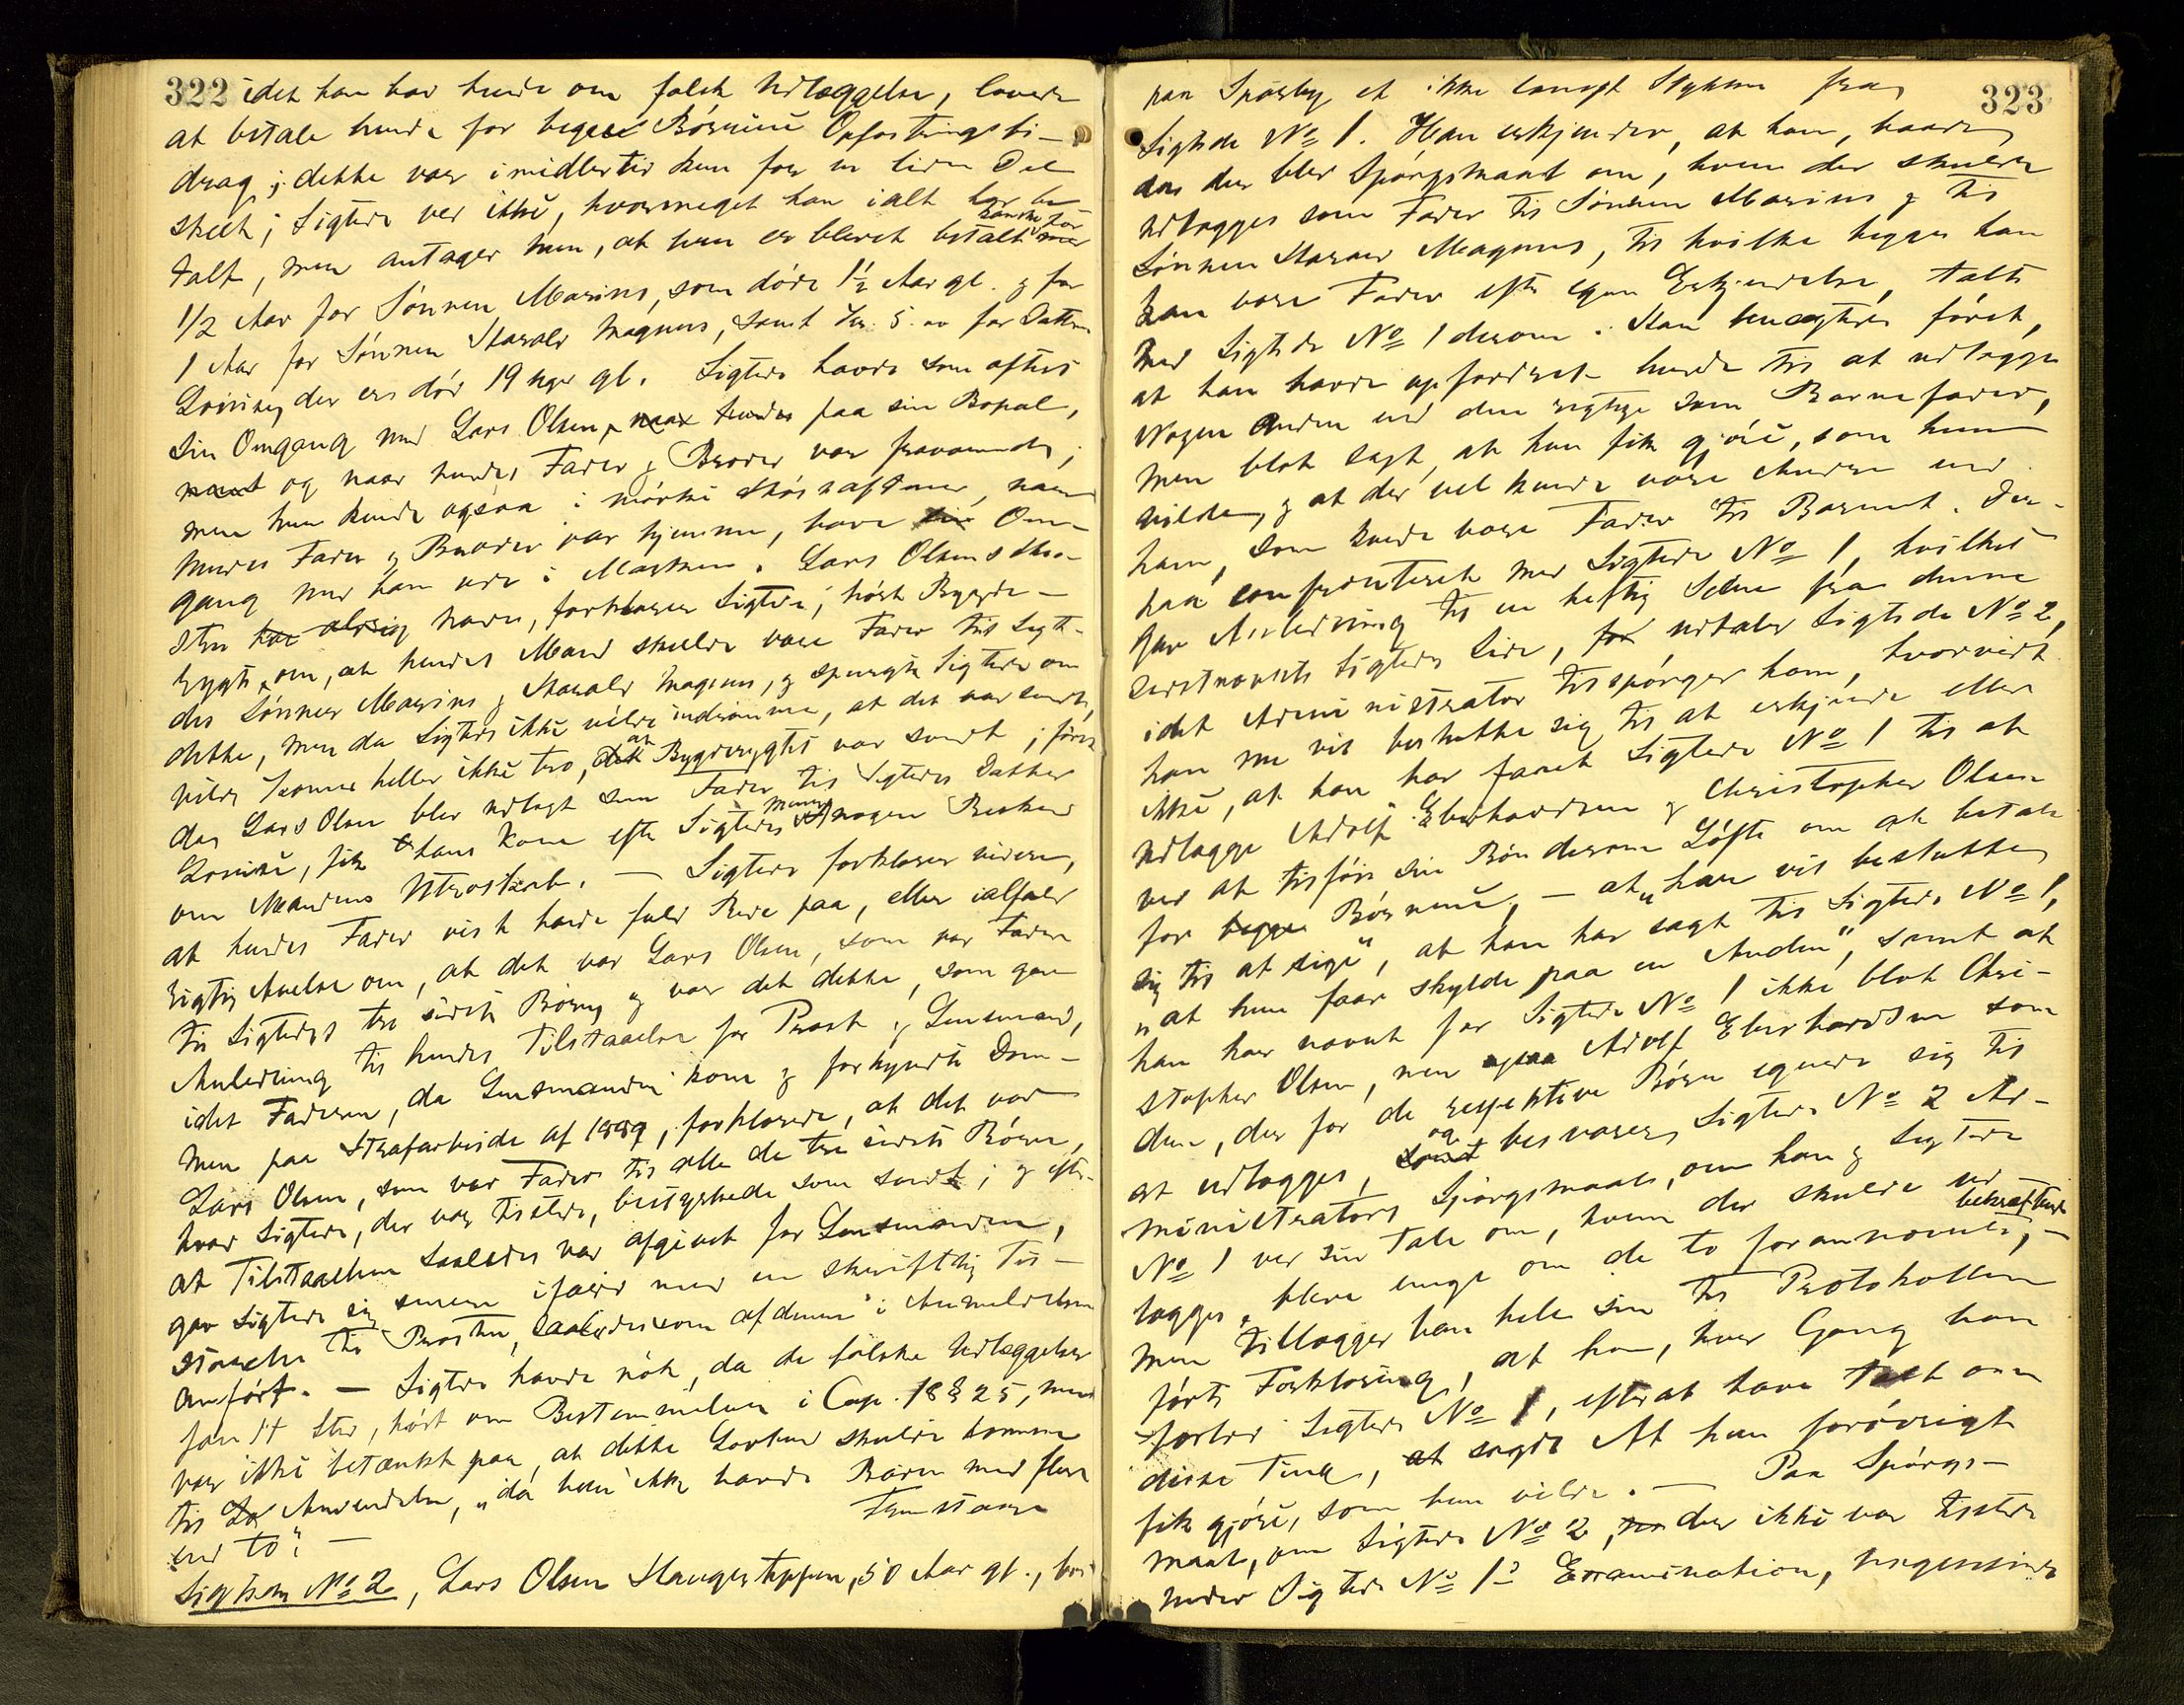 322 idet han bad hende om falsk Udlæggelse, lovede
at betale hende for begge Børnene Opfostringsbi-
drag; dette var imidlertid kun for en liden Del
skeet; Sigtede ved ikke, hvormeget han ialt har be
talt, men antager hun, at hun er blevet betalt kanske for
1/2 Aar for Sønnen Marius, som døde 1 1/2 Aar gl. og for
1 Aar for Sønnen Harald Magnus, samt Kr. 5.00 for Datteren
Lovise, der er død 19 Uger gl. Sigtede havde som oftest
sin Omgang med Lars Olsen, naar hendes paa sin Bopæl,
samt og naar hendes Fader og Broder var fraværende;
men hun kunde ogsaa i mørke Høstaftener, naar
hendes Fader og Broder var hjemme, have sin Om-
gang med ham ude i Marken. Lars Olsens Hu-
stru har aldrig havde, forklarer Sigtede, hørt Bygde-
rygte om, at hendes Mand skulde være Fader til Sigte-
des Sønner Marius og Harald Magnus, og spurgte Sigtede om
dette, men da Sigtede ikke vilde indrømme, at det var sandt,
vilde Konen heller ikke tro, at Bygderygtet var sandt; først
da Lars Olsen blev udlagt som Fader til Sigtedes Datter
Lovise, fik hans Kone efter Sigtedes Mening nogen Besked
om Mandens Utroskab. — Sigtede forklarer videre,
at hendes Fader vist havde fuld Rede paa, eller ialfald
rigtig Anelse om, at det var Lars Olsen, som var Fader
til Sigtedes tre sidste Børn, og var det dette, som gav
Anledning til hendes Tilstaaelse for Præst og Lensmand,
idet Faderen, da Lensmanden kom og forkyndte Dom-
men paa Strafarbeide af 1889, forklarede, at det var
Lars Olsen, som var Fader til alle de tre sidste Børn,
hvad Sigtede, der var tilstede, bestyrkede som sandt; og efter-
at Tilstaaelsen saaledes var afgivet for Lensmanden,
gav Sigtede sig senere ifærd med en skriftlig Til-
staaelse til Præsten, saaledes som af denne i Anmeldelsen
anført. — Sigtede havde nok, da de falske Udlæggelser
fandt Sted, hørt om Bestemmelsen i Cap. 18 § 25, men
var ikke betænkt paa, at dette Lovbud skulde komme
til Anvendelse, „da hun ikke havde Børn med flere
end to“. — Fremstaar
Sigtede No 2, Lars Olsen Haugerteppen, 50 Aar gl.,
323
paa Spørsmaal
Sigtede No 1. Han erkjender, at han, baade
da der blev Spørgsmaal om, hvem der skulde
udlægges som Fader til Sønnen Marius og til
Sønnen Harald Magnus, til hvilke begge han
kan være Fader efter egen Erkjendelse, talte
med Sigtede No 1 derom. Han benægtede først,
at han havde opfordret hende til at udlægge
Nogen Anden end den rigtige som Barnefader,
men blot sagt, at hun fik gjøre, som hun
vilde, og at der vel kunde være Andre end
ham, som kunde være Fader til Barnet. Der-
paa confronteret med Sigtede No 1, hvilket
gav Anledning til en heftig Scene fra denne
sidstnævnte Sigtedes Side, udtaler Sigtede No 2,
idet Administrator tilspørger ham, hvorvidt
han nu vil beslutte sig til at erkjende eller
ikke, at han har faaet Sigtede No 1 til at
udlægge Adolf Eberhardsen og Christopher Olsen
ved at tilføie sin Bøn derom Løfte om at betale
for begge Børnene, — at „han vil beslutte
sig til at sige“, at han har sagt til Sigtede No 1,
„at hun faar skylde paa en Anden“, samt at
han har nævnt for Sigtede No 1 ikke blot Chri-
stopher Olsen, men ogsaa Adolf Eberhardsen som
den, der for de respektive Børn egnede sig til
at udlægges, og besvarer Sigtede No 2 Ad-
ministrators Spørgsmaal, om han og Sigtede
No 1 ved sin Tale om, hvem der skulde ud
lægges, bleve enige om de to forannævnte, bekræftende
men tillægger han hele sin til Protokollen
førte Forklaring, at han, hver Gang han
forlod Sigtede No 1, efterat have talt om
disse Ting, sagde At hun forøvrigt
fik gjøre, som hun vilde. — Paa Spørgs-
maal, om Sigtede No 2, der ikke var tilstede
under Sigtede No 1's Examination,